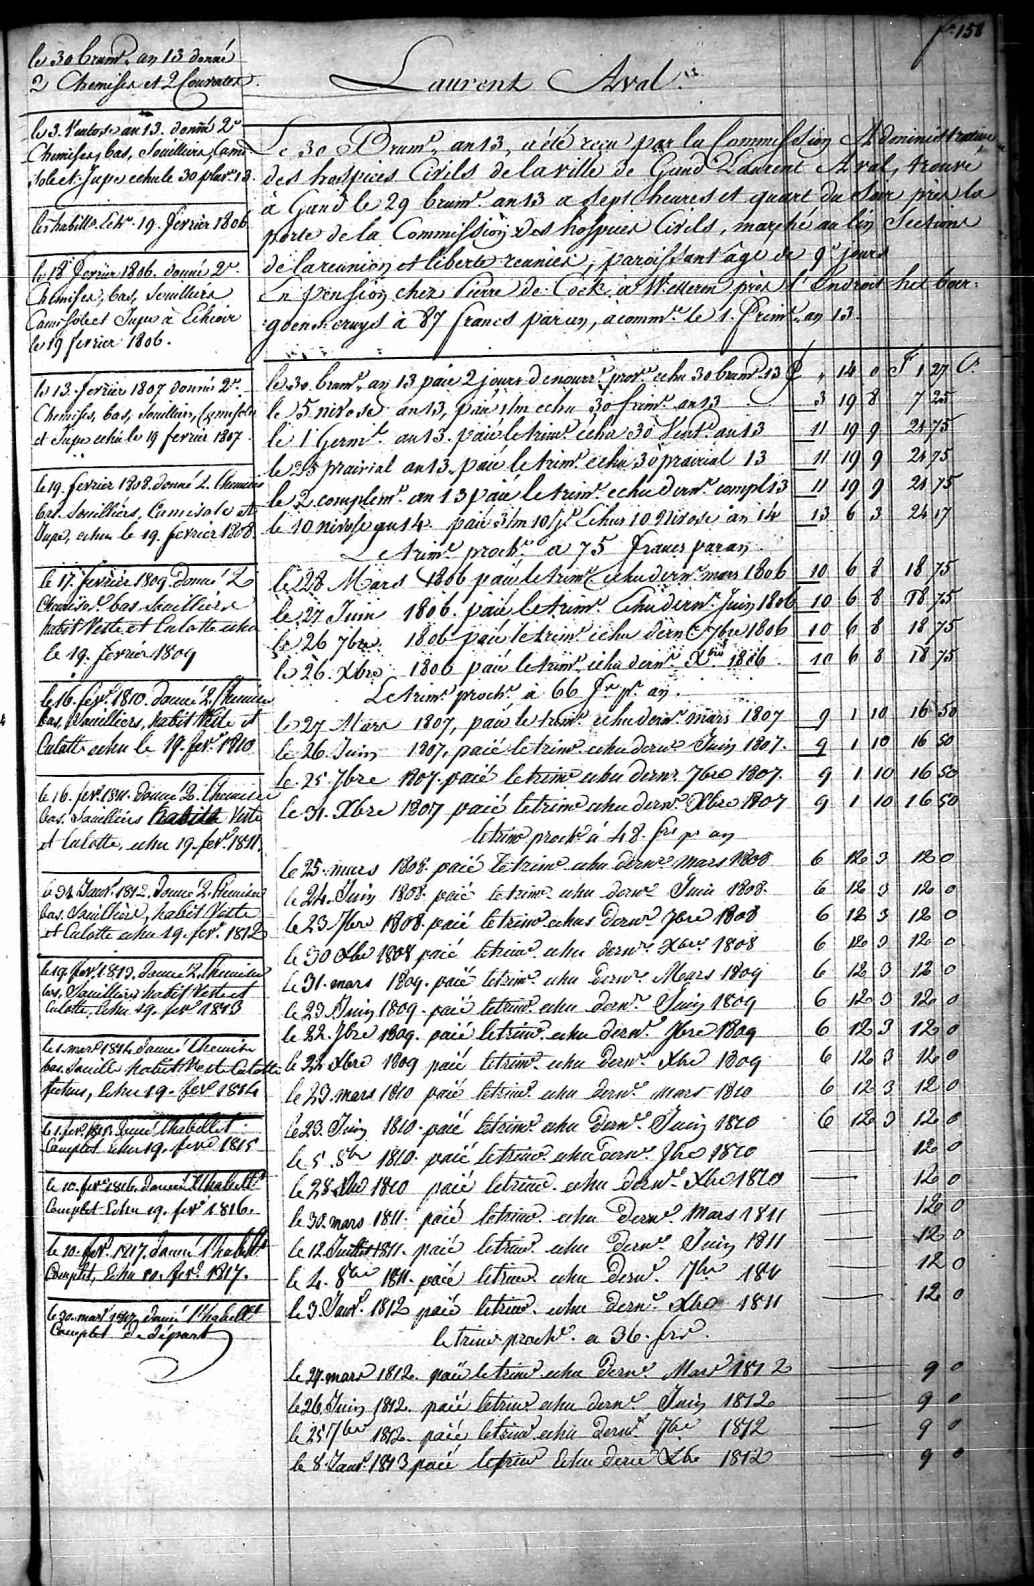 fo 158
Laurent Aval.
le 30 brumre an 13 donné
2 Chemises et 2 Couvertes.
le 3. Ventose an 13. donné 2
Chemises, bas, Souilliers, Cami
sole et Jupe echu le 30 pluv. 13.
les habillé. echr. 19. fevrier 1806
le 18 fevrier 1806. donné 2
Chemises, bas, Souilliers
Camisole et Jupe à Echeoir
le 19 fevrier 1806.
le 13. fevrier 1807 donné 2
Chemises, bas, Souilliers, Camisole
et Jupe echu le 19 fevrier 1807.
le 19. fevrier 1808. donné 2. Chemises
bas. Souilliers, Camisole et
Jupe, echu le 19. fevrier 1808
le 17. fevrier 1809. donné 2
Chemises bas Souilliers
habit Veste et Culotte echu
le 19. fevrier 1809
le 16. fevr. 1810. donné 2. Chemises
bas, Souilliers, habit Veste et
Culotte echu le 19. fevr. 1810
le 16. fevr. 1811. donné 2. Chemises
bas. Souilliers habit Veste
et Culotte, echu 19. fevr. 1811.
le 24 Janvr. 1812. donné 2. Chemises
bas. Souilliers, habit Veste
et Culotte echu 19. fevr. 1812
le 19. fevr. 1813. donné 2. Chemises
bas, Souilliers habit Veste et
Culotte, echu 19. fevr. 1813
le 1. mars 1814 donné Chemises
bas. Souill. habit Veste Culotte
echu 19. fevr 1814
le 1. fevr. 1815. donné l'habillt.
Complet echu 19. fevr 1815
le 10. fevr. 1816. donné l'habillt.
Complet Echu 19. fevr. 1816.
le 10. fevr. 1817. donné l'habillt.
Complet, Echu 19. fevr. 1817.
le 30. mars 1817. donné l'habillt.
Complet de départ
Le 30 Brumre. an 13, a été reçu par la Commission Administrative
des hospices Civils de la ville de Gand Laurent Aval, trouvé
à Gand le 29 brumre. an 13 a sept heures et quart du Soir près la
porte de la Commission des hospices Civils, marché au lin Sections
de la reunion et liberté reunies, paroissant agé de 9 jours
En pension chez Pierre de Cock, a Wetteren près l'Endroit het bour-
goensch cruys à 87 francs par an, a commr. le 1. frimre. an 13.
le 30. brumre. an 13 paié 2 jours de nourre. provre. echu 30 brumre. 13 £ " 14 0 F 1 27 Cs.
le 5 nivose an 13, paié 1/m echu 30 frimre. an 13 3 19 8 7 25
le 1 Germl. an 13. paié le trimre. echu 30 Ventre. an 13 11 19 9 21 75
le 25 prairial an 13. paié le trimre. echu 30 prairial 13 11 19 9 21 75
le 2 complemre. an 13 paié le trimre. echu dernr. compl 13 11 19 9 21 75
le 10 nivose an 14. paié 3/m 10 jrs Echus 10 Nivose an 14 13 6 3 24 17
Le trimre. prochn. a 75 francs par an
le 28 Mars 1806 paié le trimre. echu dernr. mars 1806 10 6 8 18 75
le 27 Juin 1806. paié le trimre. Echu dernr. Juin 1806 10 6 8 18 75
le 26 7bre 1806 paié le trimre. echu dernr. 7bre 1806 10 6 8 18 75
le 26. Xbre 1806 paié le trimre. echu dernr. Xbre 1806 10 6 8 18 75
Le trimre. prochn. à 66 frs pr. an.
le 27 Mars 1807, paié le trimre. echu dernr. mars 1807 9 1 10 16 50
le 26. Juin 1807, paié le trimre. echu dernr. Juin 1807. 9 1 10 16 50
le 25 7bre 1807. paié le trimre echu dernr. 7bre 1807. 9 1 10 16 50
le 31. Xbre 1807 paié le trimre echu dernr. Xbre 1807 9 1 10 16 50
le trimre prochn à 48. frs pr an
le 25. mars 1808. paié le trimre. echu dernr. mars 1808 6 12 3 12 0
le 24. Juin 1808. paié le trimre. echu dernr. Juin 1808. 6 12 3 12 0
le 23 7bre 1808. paié le trimre. echus dernr. 7bre 1808 6 12 3 12 0
le 30 Xbre 1808 paié le trimre. echu dernr. Xbre 1808 6 12 3 12 0
le 31. mars 1809. paié le trimre. echu dernr. Mars 1809 6 12 3 12 0
le 23. Juin 1809. paié le trimre. echu dernr. Juin 1809 6 12 3 12 0
le 22. 7bre 1809. paié le trimre. echu dernr. 7bre 1809 6 12 3 12 0
le 22 Xbre 1809 paié le trimre. echu dernr. Xbre 1809 6 12 3 12 0
le 23. mars 1810 paié le trimre. echu dernr. mars 1810 6 12 3 12 0
le 23. Juin 1810. paié le trimre. echu dernr. Juin 1810 6 12 3 12 0
le 5. 8bre 1810. paié le trimre. echu dernr. 7bre 1810 12 0
le 28 Xbre 1810 paié le trimre. echu dernr. Xbre 1810 12 0
le 30. mars 1811. paié le trimre. echu dernr. Mars 1811 12 0
le 12 Juillet 1811. paié le trimre. echu dernr. Juin 1811 12 0
le 4. 8bre 1811. paié le trimre. echu dernr. 7bre 1811 12 0
le 3 Janvr. 1812 paié le trimre. echu dernr. Xbre 1811 12 0
le trimre prochn. a 36. frs.
le 27. mars 1812. paié le trimre. echu dernr. Mars 1812 9 0
le 26 Juin 1812. paié le trimre. echu dernr. Juin 1812 9 0
le 25 7bre 1812. paié le trimre. echu dernr. 7bre 1812 9 0
le 8. Janvr. 1813 paié le trimre Echu dernr Xbre 1812 9 0